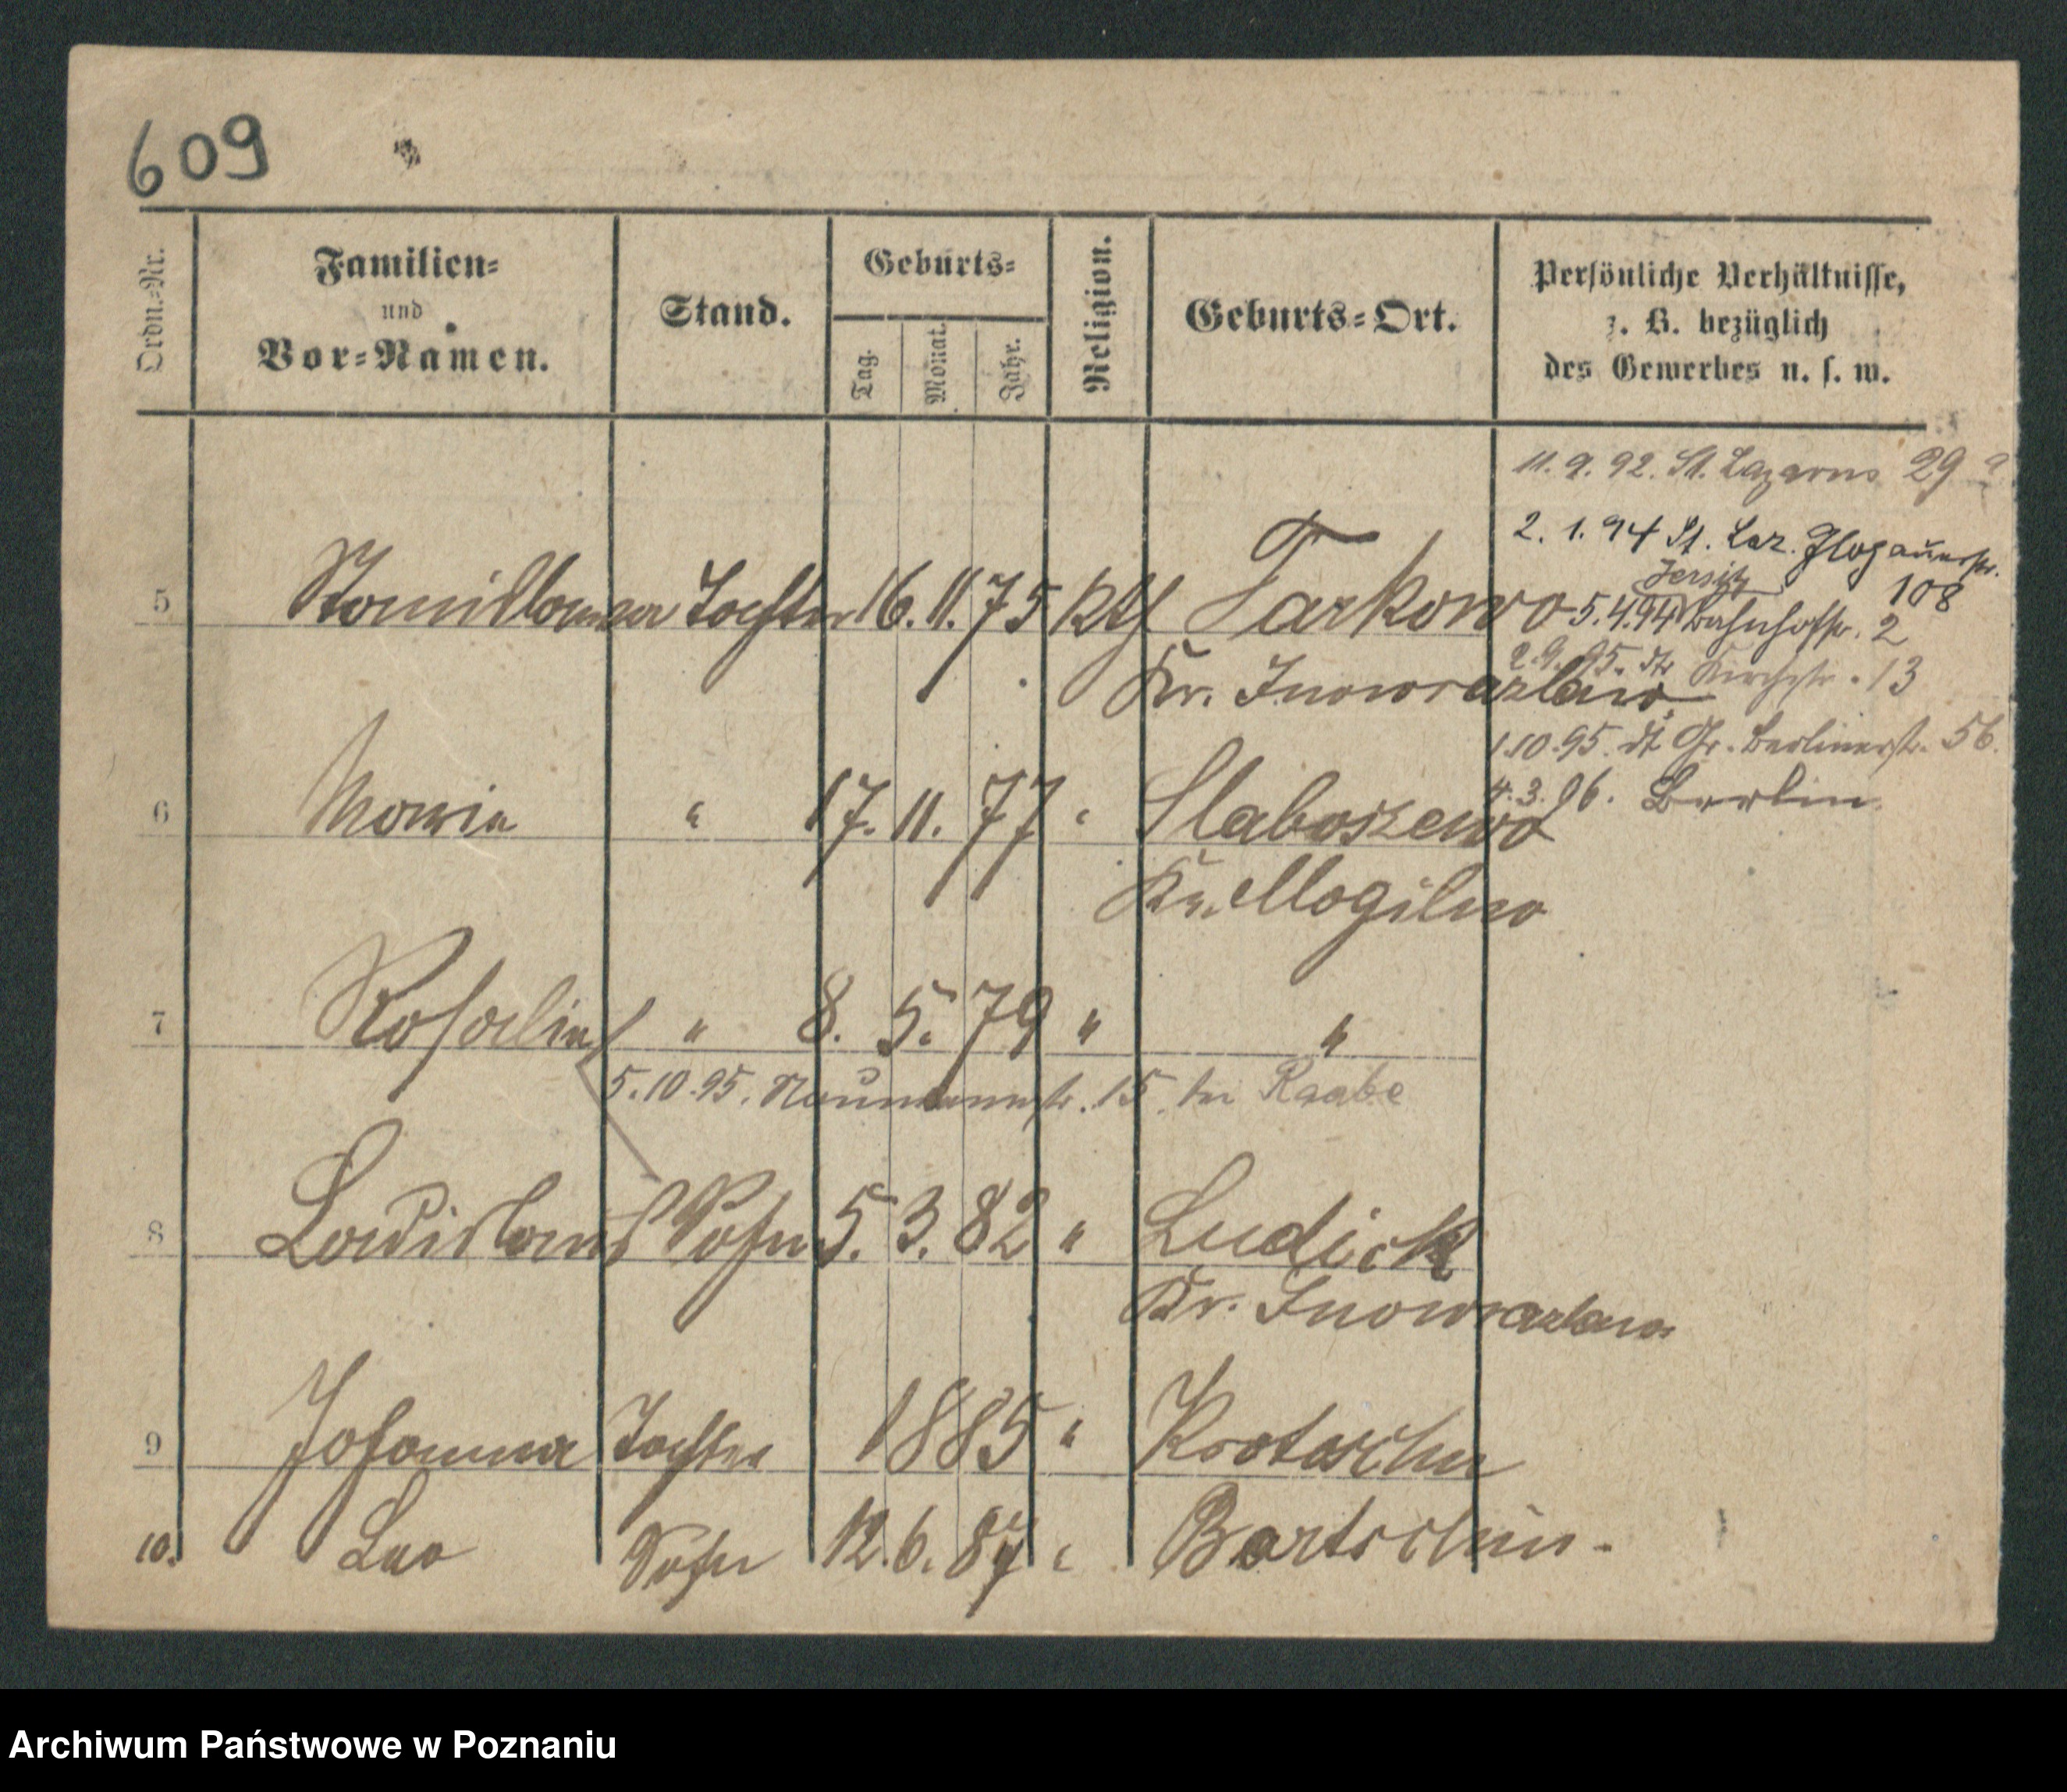 609
Ordn.-Nr.
Familien-
und
Vor-Namen.
Stand.
Geburts-
Tag.
Monat.
Jahr.
Religion.
Geburts-Ort.
Persönliche Verhältnisse,
z. B. bezüglich
des Gewerbes u. s. w.
11. 9. 92. St. Lazarus 29
2. 1. 94 St. Laz. Glogauerstr.
108
5 Tochter 16. 11. 75 kth Tarkowo
Jersitz
5. 4. 94 Bahnhofstr. 2
Kr. Inowrazlaw
2. 9. 95. dt Kirchstr. 13
1. 10. 95. dt Gr. Berlinerstr. 56.
6 Maria " 17. 11. 77 " Slaboszewo
4. 3. 96. Berlin
Kr. Mogilno
7 Rosalia " 8. 5. 79 " "
5. 10. 95. Naumannstr. 15. bei Raabe
8 Ladislaus Sohn 5. 3. 82 " Ludisk
Kr. Inowrazlaw
9 Johanna Tochter 1885 "
10. Leo Sohn 12. 6. 87 " Bartschin
Archiwum Państwowe w Poznaniu